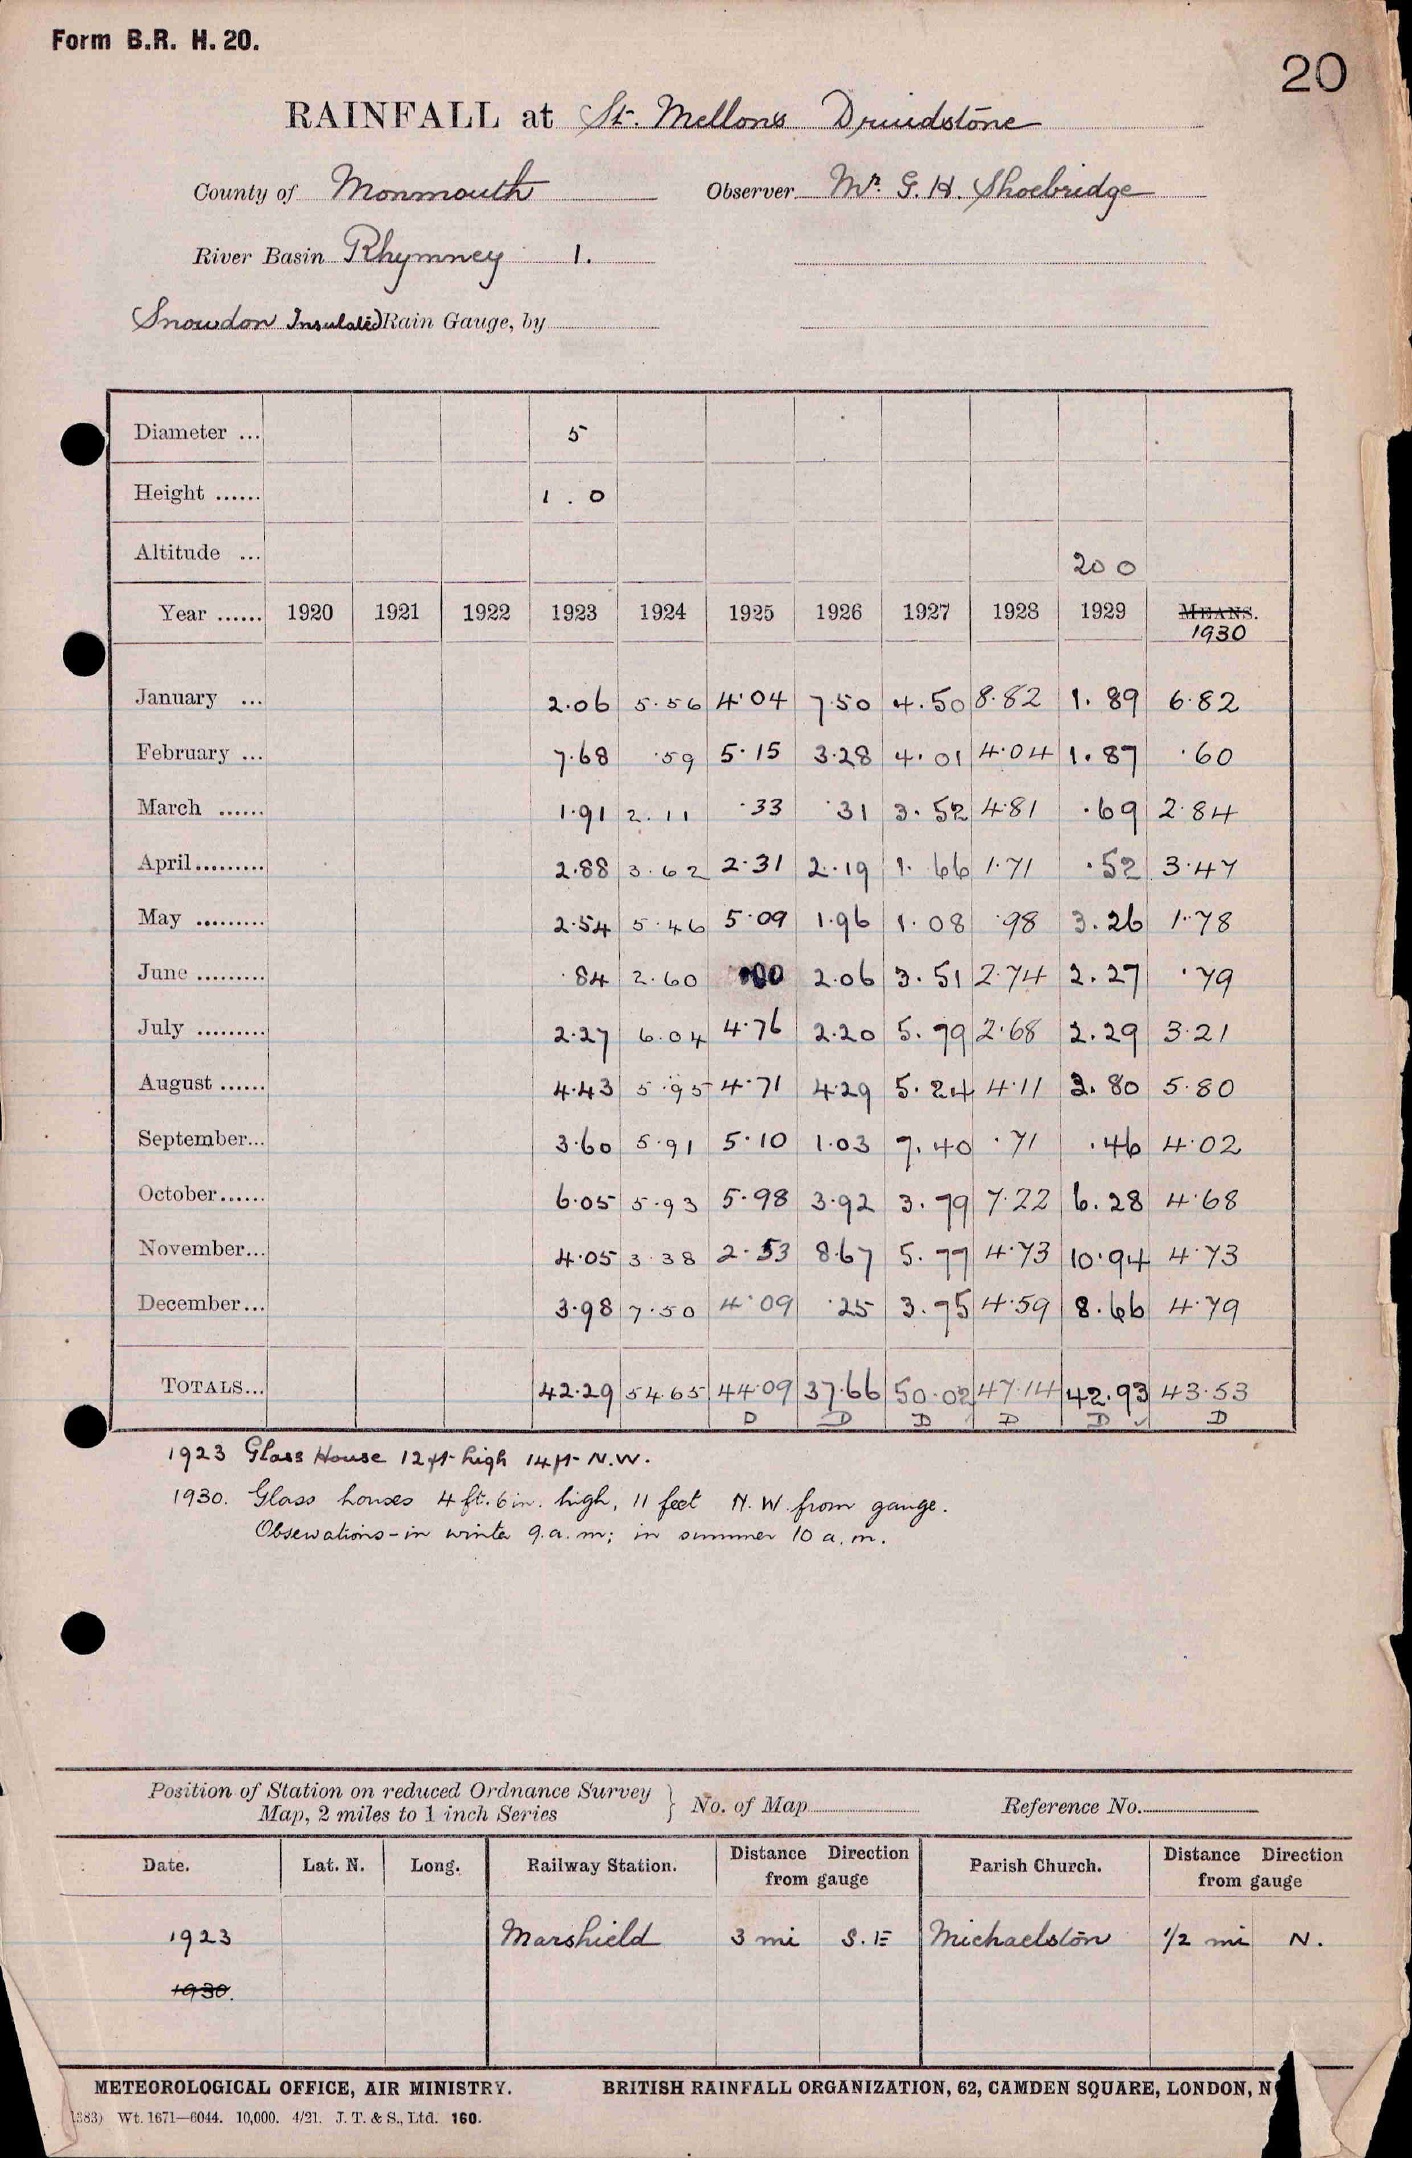 Form B.R. H. 20.
20
RAINFALL at St. Mellons Druidstone
County of Monmouth Observer Mr. G. H. Shoebridge
River Basin Rhymney 1.
Snowdon Insulated Rain Gauge, by
Diameter ... 5
Height ...... 1 . 0
Altitude ... 200
Year ...... 1920 1921 1922 1923 1924 1925 1926 1927 1928 1929 MEANS.
1930
January ... 2.06 5.56 4.04 7.50 4.50 8.82 1.89 6.82
February ... 7.68 .59 5.15 3.28 4.01 4.04 1.87 .60
March ...... 1.91 2.11 .33 .31 3.52 4.81 .69 2.84
April ......... 2.88 3.62 2.31 2.19 1.66 1.71 .52 3.47
May ......... 2.54 5.46 5.09 1.96 1.08 .98 3.26 1.78
June ......... .84 2.60 .00 2.06 3.51 2.74 2.27 .79
July ......... 2.27 6.04 4.76 2.20 5.79 2.68 2.29 3.21
August ...... 4.43 5.95 4.71 4.29 5.24 4.11 3.80 5.80
September... 3.60 5.91 5.10 1.03 7.40 .71 .46 4.02
October...... 6.05 5.93 5.98 3.92 3.79 7.22 6.28 4.68
November... 4.05 3.38 2.53 8.67 5.77 4.73 10.94 4.73
December... 3.98 7.50 4.09 .25 3.75 4.59 8.66 4.79
TOTALS... 42.29 54.65 44.09 37.66 50.02 47.14 42.93 43.53
D D D D D D
1923 Glass House 12 ft high 14 ft N.W.
1930. Glass houses 4 ft. 6 in. high, 11 feet N.W. from gauge.
Observations - in winter 9. a.m; in summer 10 a.m.
Position of Station on reduced Ordnance Survey
Map, 2 miles to 1 inch Series } No. of Map Reference No.
Date. Lat. N. Long. Railway Station. Distance Direction from gauge Parish Church. Distance Direction from gauge
1923 Marshield 3 mi S.E Michaelston 1/2 mi N.
1930.
METEOROLOGICAL OFFICE, AIR MINISTRY. BRITISH RAINFALL ORGANIZATION, 62, CAMDEN SQUARE, LONDON, N
383) Wt. 1671—6044. 10,000. 4/21. J. T. & S., Ltd. 160.